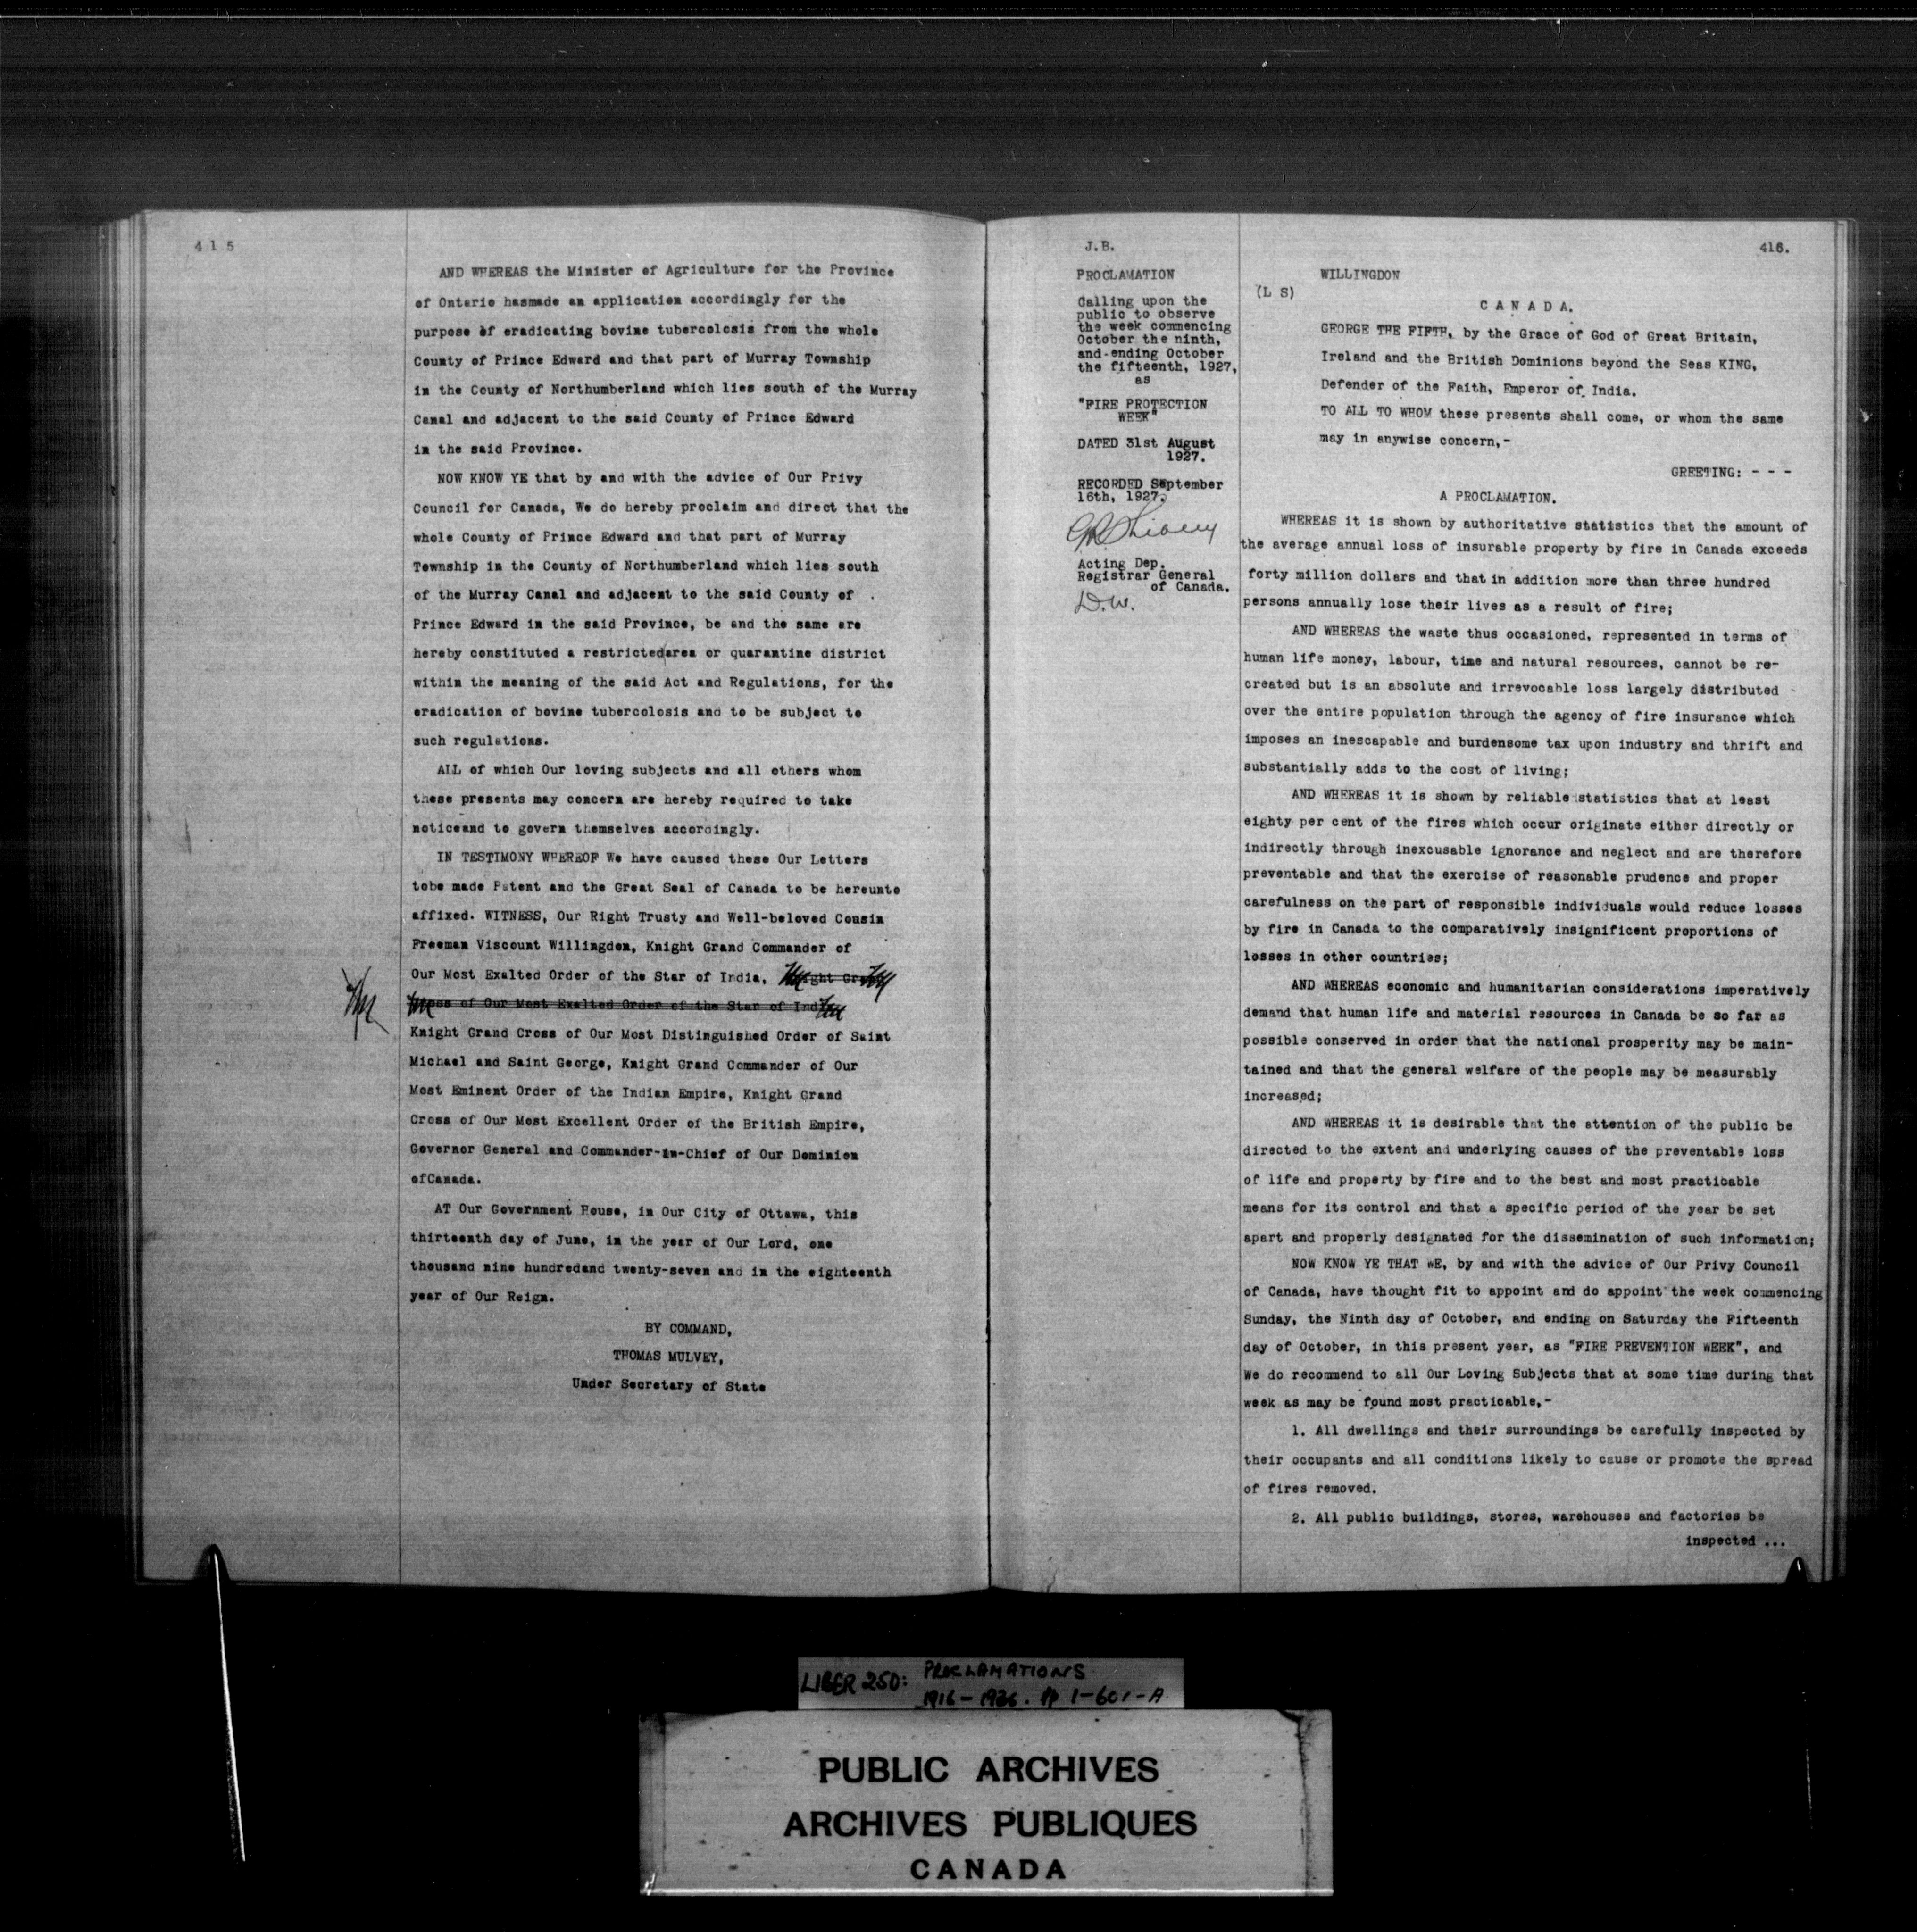 4 1 5
AND WHEREAS the Minister of Agriculture for the Province
of Ontario hasmade an application accordingly for the
purpose of eradicating bovine tubercolosis from the whole
County of Prince Edward and that part of Murray Township
in the County of Northumberland which lies south of the Murray
Canal and adjacent to the said County of Prince Edward
in the said Province.
NOW KNOW YE that by and with the advice of Our Privy
Council for Canada, We do hereby proclaim and direct that the
whole County of Prince Edward and that part of Murray
Township in the County of Northumberland which lies south
of the Murray Canal and adjacent to the said County of
Prince Edward in the said Province, be and the same are
hereby constituted a restrictedarea or quarantine district
within the meaning of the said Act and Regulations, for the
eradication of bovine tubercolosis and to be subject to
such regulations.
ALL of which Our loving subjects and all others whom
these presents may concern are hereby required to take
noticeand to govern themselves accordingly.
IN TESTIMONY WHEREOF We have caused these Our Letters
tobe made Patent and the Great Seal of Canada to be hereunto
affixed. WITNESS, Our Right Trusty and Well-beloved Cousin
Freeman Viscount Willingdon, Knight Grand Commander of
Our Most Exalted Order of the Star of India, Knight Grand
Cross of Our Most Exalted Order of the Star of India
Knight Grand Cross of Our Most Distinguished Order of Saint
Michael and Saint George, Knight Grand Commander of Our
Most Eminent Order of the Indian Empire, Knight Grand
Cross of Our Most Excellent Order of the British Empire,
Governor General and Commander-in-Chief of Our Dominion
ofCanada.
AT Our Government House, in Our City of Ottawa, this
thirteenth day of June, in the year of Our Lord, one
thousand nine hundredand twenty-seven and in the eighteenth
year of Our Reign.
BY COMMAND,
THOMAS MULVEY,
Under Secretary of State
J.B.
PROCLAMATION
Calling upon the
public to observe
the week commencing
October the ninth,
and ending October
the fifteenth, 1927,
as
"FIRE PROTECTION
WEEK"
DATED 31st August
1927.
RECORDED September
16th, 1927.
Acting Dep.
Registrar General
of Canada.
D.W.
416.
WILLINGDON
(L S)
C A N A D A.
GEORGE THE FIFTH, by the Grace of God of Great Britain,
Ireland and the British Dominions beyond the Seas KING,
Defender of the Faith, Emperor of India.
TO ALL TO WHOM these presents shall come, or whom the same
may in anywise concern,-
GREETING: - - -
A PROCLAMATION.
WHEREAS it is shown by authoritative statistics that the amount of
the average annual loss of insurable property by fire in Canada exceeds
forty million dollars and that in addition more than three hundred
persons annually lose their lives as a result of fire;
AND WHEREAS the waste thus occasioned, represented in terms of
human life money, labour, time and natural resources, cannot be re-
created but is an absolute and irrevocable loss largely distributed
over the entire population through the agency of fire insurance which
imposes an inescapable and burdensome tax upon industry and thrift and
substantially adds to the cost of living;
AND WHEREAS it is shown by reliable statistics that at least
eighty per cent of the fires which occur originate either directly or
indirectly through inexcusable ignorance and neglect and are therefore
preventable and that the exercise of reasonable prudence and proper
carefulness on the part of responsible individuals would reduce losses
by fire in Canada to the comparatively insignificent proportions of
losses in other countries;
AND WHEREAS economic and humanitarian considerations imperatively
demand that human life and material resources in Canada be so far as
possible conserved in order that the national prosperity may be main-
tained and that the general welfare of the people may be measurably
increased;
AND WHEREAS it is desirable that the attention of the public be
directed to the extent and underlying causes of the preventable loss
of life and property by fire and to the best and most practicable
means for its control and that a specific period of the year be set
apart and properly designated for the dissemination of such information;
NOW KNOW YE THAT WE, by and with the advice of Our Privy Council
of Canada, have thought fit to appoint and do appoint the week commencing
Sunday, the Ninth day of October, and ending on Saturday the Fifteenth
day of October, in this present year, as "FIRE PREVENTION WEEK", and
We do recommend to all Our Loving Subjects that at some time during that
week as may be found most practicable,-
1. All dwellings and their surroundings be carefully inspected by
their occupants and all conditions likely to cause or promote the spread
of fires removed.
2. All public buildings, stores, warehouses and factories be
inspected ...
LIBER 250: PROCLAMATIONS
1916-1936. pp 1-601-A
PUBLIC ARCHIVES
ARCHIVES PUBLIQUES
CANADA